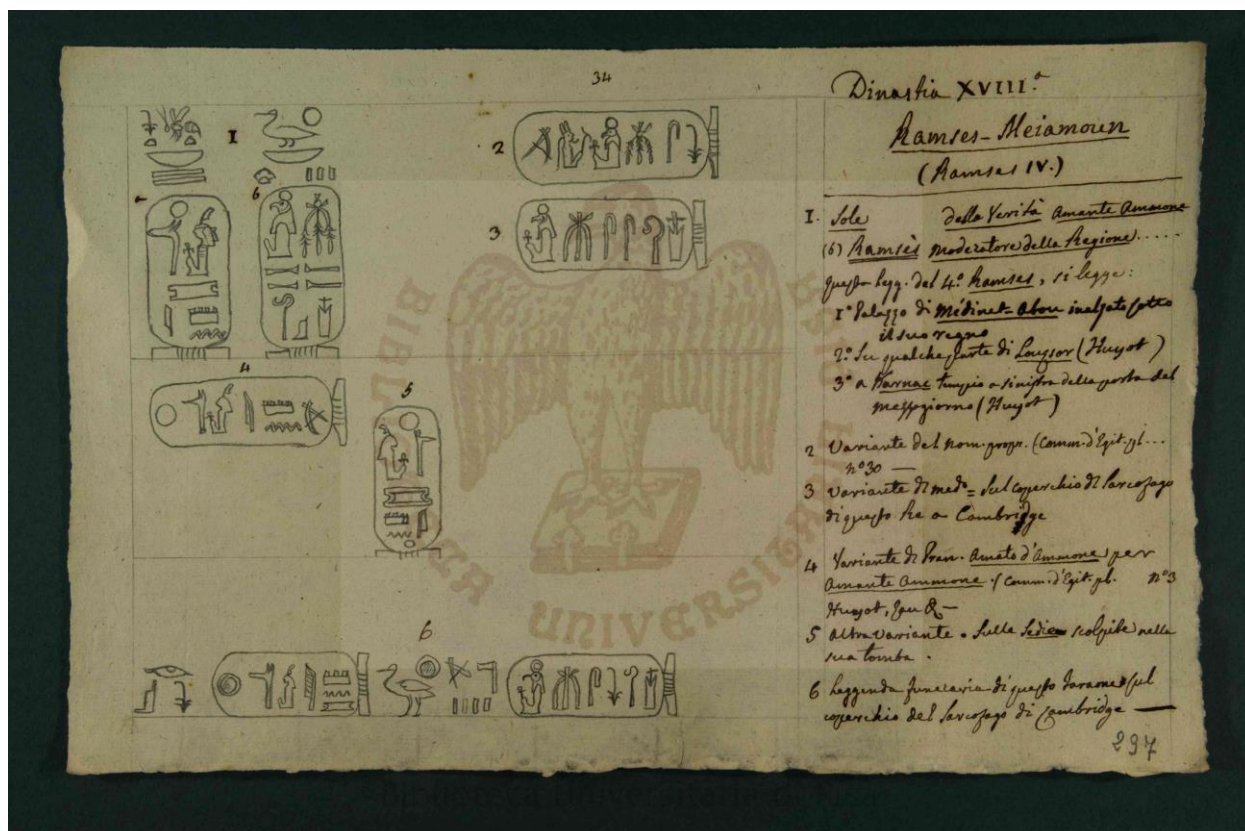 34
Dinastia XVIII.a
Ramses-Meiamoun
(Ramses IV.)
1
a
6
2
3
4
5
6
I. Sole della Verità Amante Ammone
(6) Ramsès moderatore della Regione.....
questa legg. del 4.º Ramses, si legge:
1º Palazzo di Médinet-Abou inalzato sotto
il suo regno
2.º Su qualche parte di Louqsor (Huyot)
3º a Karnac tempio a sinistra della porta del
mezzogiorno (Huyot)
2 Variante del nom. propr. (Comm. d'Egit. pl...
nº 30 —
3 Variante di med.º = sul coperchio di Sarcofago
di questo Re a Cambridge
4 Variante di Pran. Amato d'Ammone per
Amante Ammone. (Comm. d'Egit. pl. nº 3
Huyot, Gau & —
5 altra variante = sulle Sedie scolpite nella
sua tomba.
6 Leggenda funeraria di questo Faraone sul
coperchio del Sarcofago di Cambridge —
297
BIBLIOTECA UNIVERSITARIA DI